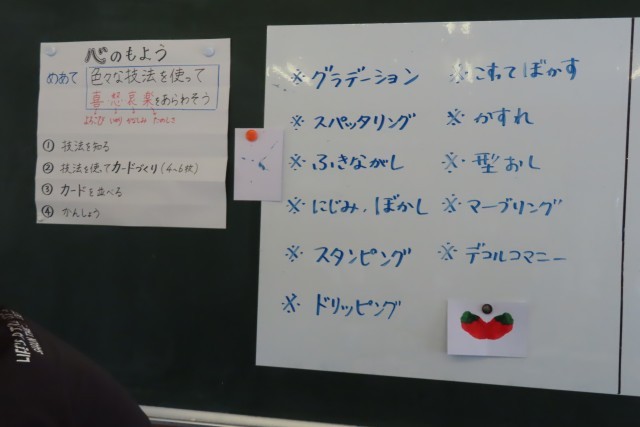 心のもよう
めあて 色々な技法を使って
喜怒哀楽をあらわそう
よろこび いかり かなしみ たのしさ
① 技法を知る
② 技法を使ってカードづくり(4~6枚)
③ カードを並べる
④ かんしょう
※ グラデーション
※ スパッタリング
※ ふきながし
※ にじみ、ぼかし
※ スタンピング
※ ドリッピング
※ こすってぼかす
※ かすれ
※ 型おし
※ マーブリング
※ デコルコマニー